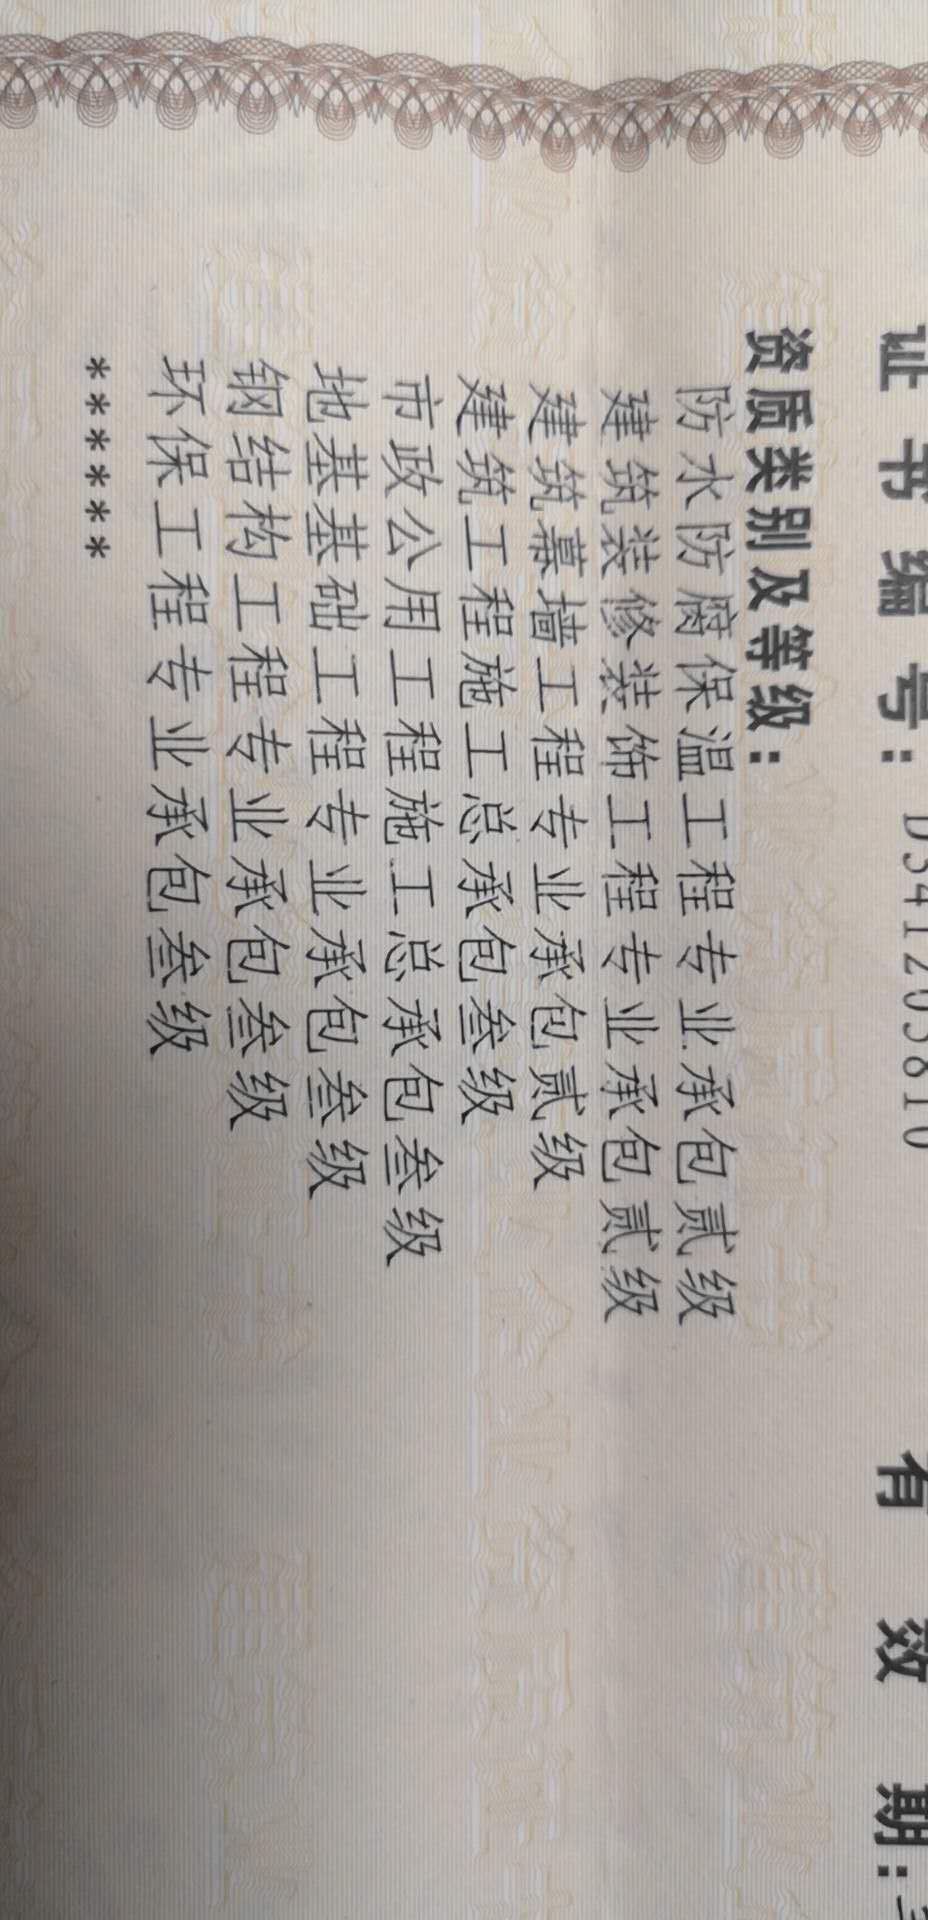 证书编号: D341205810
有效期:
资质类别及等级:
防水防腐保温工程专业承包贰级
建筑装修装饰工程专业承包贰级
建筑幕墙工程专业承包贰级
建筑工程施工总承包叁级
市政公用工程施工总承包叁级
地基基础工程专业承包叁级
钢结构工程专业承包叁级
环保工程专业承包叁级
******